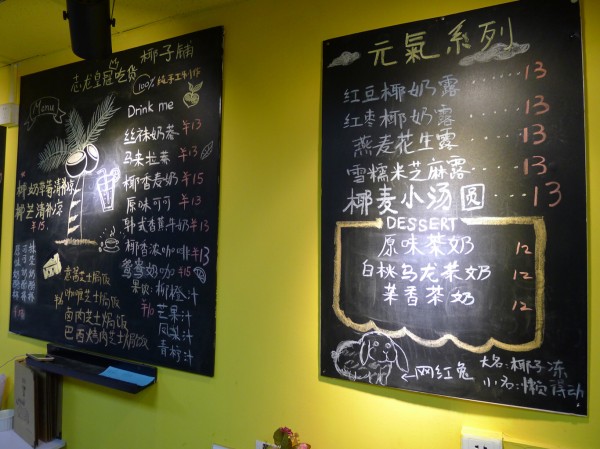 椰子铺
志龙皇冠吃货
100% 纯手工制作
Menu
Drink me
丝袜奶茶 ¥13
马来拉茶 ¥13
椰香麦奶 ¥15
原味可可 ¥13
韩式香蕉牛奶 ¥13
椰香浓咖啡 ¥13
鸳鸯奶咖 ¥15
椰奶草莓清补凉
椰芒清补凉
¥15
果汁: 柳橙汁
芒果汁
凤梨汁
青柠汁
¥10
意酱芝士焗饭
咖喱芝士焗饭
卤肉芝士焗饭
巴西烤肉芝士焗饭
元氣系列
红豆椰奶露 ...... 13
红枣椰奶露 ...... 13
燕麦花生露 ...... 13
雪糯米芝麻露 ..... 13
椰麦小汤圆 ... 13
DESSERT
原味茶奶 12
白桃乌龙茶奶 12
茉香茶奶 12
←网红兔
大名:椰子冻
小名:懒得动